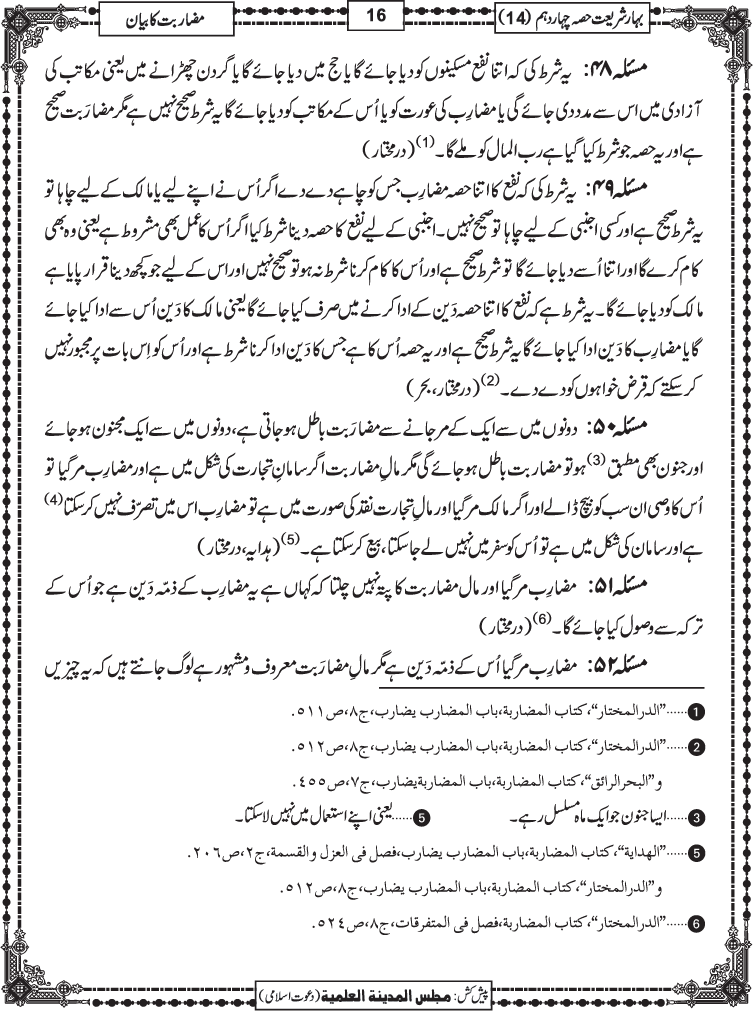 بہارِ شریعت حصہ چہاردہم (14)
16
مضاربت کا بیان
مسئلہ ۴۸: یہ شرط کی کہ اتنا نفع مسکینوں کو دیا جائے گا یا حج میں دیا جائے گا یا گردن چھڑانے میں یعنی مکاتب کی
آزادی میں اس سے مدد دی جائے گی یا مضارِب کی عورت کو یا اُس کے مکاتب کو دیا جائے گا یہ شرط صحیح نہیں ہے مگر مضارَبت صحیح
ہے اور یہ حصہ جو شرط کیا گیا ہے رب المال کو ملے گا۔(1) (درمختار)
مسئلہ ۴۹: یہ شرط کی کہ نفع کا اتنا حصہ مضارِب جس کو چاہے دے دے اگر اُس نے اپنے لیے یا مالک کے لیے چاہا تو
یہ شرط صحیح ہے اور کسی اجنبی کے لیے چاہا تو صحیح نہیں۔ اجنبی کے لیے نفع کا حصہ دینا شرط کیا اگر اُس کا عمل بھی مشروط ہے یعنی وہ بھی
کام کرے گا اور اتنا اُسے دیا جائے گا تو شرط صحیح ہے اور اُس کا کام کرنا شرط نہ ہو تو صحیح نہیں اور اس کے لیے جو کچھ دینا قرار پایا ہے
مالک کو دیا جائے گا۔ یہ شرط ہے کہ نفع کا اتنا حصہ دَین کے ادا کرنے میں صرف کیا جائے گا یعنی مالک کا دَین اُس سے ادا کیا جائے
گا یا مضارِب کا دَین ادا کیا جائے گا یہ شرط صحیح ہے اور یہ حصہ اُس کا ہے جس کا دَین ادا کرنا شرط ہے اور اُس کو اِس بات پر مجبور نہیں
کرسکتے کہ قرض خواہوں کو دے دے۔(2) (درمختار، بحر)
مسئلہ ۵۰: دونوں میں سے ایک کے مرجانے سے مضارَبت باطل ہوجاتی ہے، دونوں میں سے ایک مجنون ہوجائے
اور جنون بھی مطبق(3) ہو تو مضاربت باطل ہوجائے گی مگر مالِ مضاربت اگر سامانِ تجارت کی شکل میں ہے اور مضارب مرگیا تو
اُس کا وصی ان سب کو بیچ ڈالے اور اگر مالک مرگیا اور مالِ تجارت نقد کی صورت میں ہے تو مضارب اس میں تصرّف نہیں کرسکتا(4)
ہے اور سامان کی شکل میں ہے تو اُس کو سفر میں نہیں لے جاسکتا، بیع کرسکتا ہے۔(5) (ہدایہ، درمختار)
مسئلہ ۵۱: مضارِب مرگیا اور مالِ مضاربت کا پتہ نہیں چلتا کہ کہاں ہے یہ مضارِب کے ذمّہ دَین ہے جو اُس کے
ترکہ سے وصول کیا جائے گا۔(6) (درمختار)
مسئلہ ۵۲: مضارِب مرگیا اُس کے ذمّہ دَین ہے مگر مالِ مضارَبت معروف و مشہور ہے لوگ جانتے ہیں کہ یہ چیزیں
1......”الدرالمختار“، کتاب المضاربة، باب المضارب یضارب، ج۸، ص۵۱۱.
2......”الدرالمختار“، کتاب المضاربة، باب المضارب یضارب، ج۸، ص۵۱۲.
و”البحرالرائق“، کتاب المضاربة، باب المضاربةیضارب، ج۷، ص۴۵۵.
3......ایسا جنون جو ایک ماہ مسلسل رہے۔ 5......یعنی اپنے استعمال میں نہیں لاسکتا۔
5......”الهداية“، کتاب المضاربة، باب المضارب یضارب، فصل فی العزل والقسمة، ج۲، ص۲۰۶.
و”الدرالمختار“، کتاب المضاربة، باب المضارب یضارب، ج۸، ص۵۱۲.
6......”الدرالمختار“، کتاب المضاربة، فصل فی المتفرقات، ج۸، ص۵۲۴.
پیش کش: مجلس المدینة العلمیة (دعوتِ اسلامی)